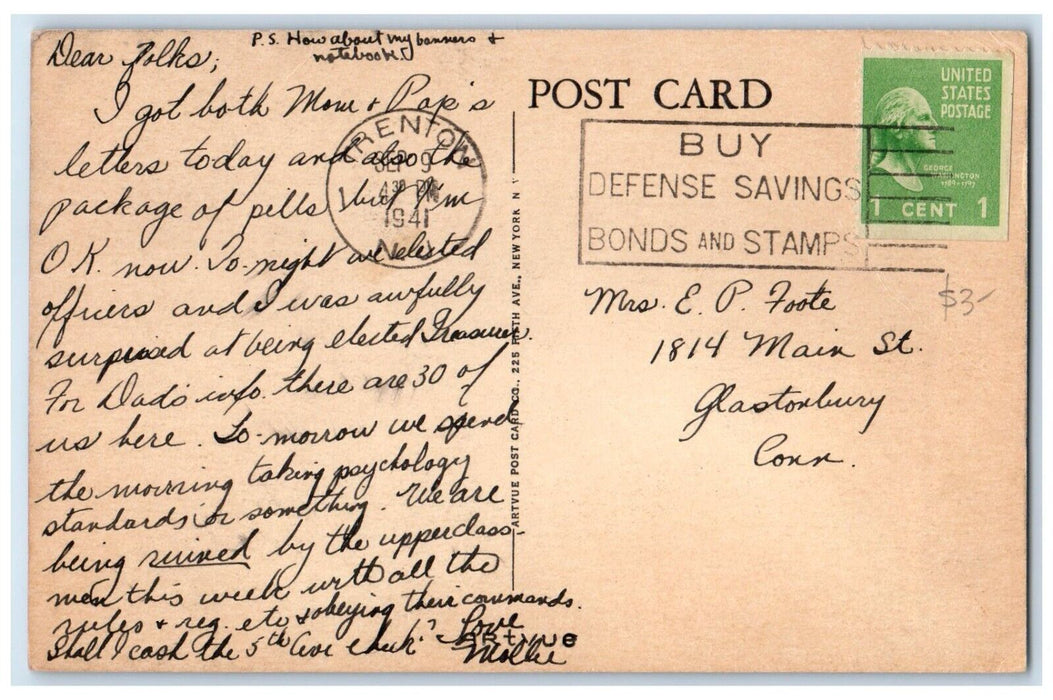 Dear Folks,
P.S. How about my banners +
notebook?
I got both Mom + Pop's
letters today and also the
package of pills but I'm
O.K. now. To-night we elected
officers and I was awfully
surprised at being elected Treasurer.
For Dad's info. there are 30 of
us here. To-morrow we spend
the morning taking psychology
standards or something. We are
being ruined by the upperclass-
men this week with all the
rules + reg. etc + obeying their commands.
Shall I cash the 5th Ave check?
Love
Mollie
POST CARD
TRENTON
SEP 9
4 30 PM
1941
N.J.
BUY
DEFENSE SAVINGS
BONDS AND STAMPS
UNITED
STATES
POSTAGE
GEORGE
WASHINGTON
1789-1797
1 CENT 1
$3-
Mrs. E. P. Foote
1814 Main St.
Glastonbury
Conn.
ARTVUE POST CARD CO., 225 FIFTH AVE., NEW YORK N
ARTVUE